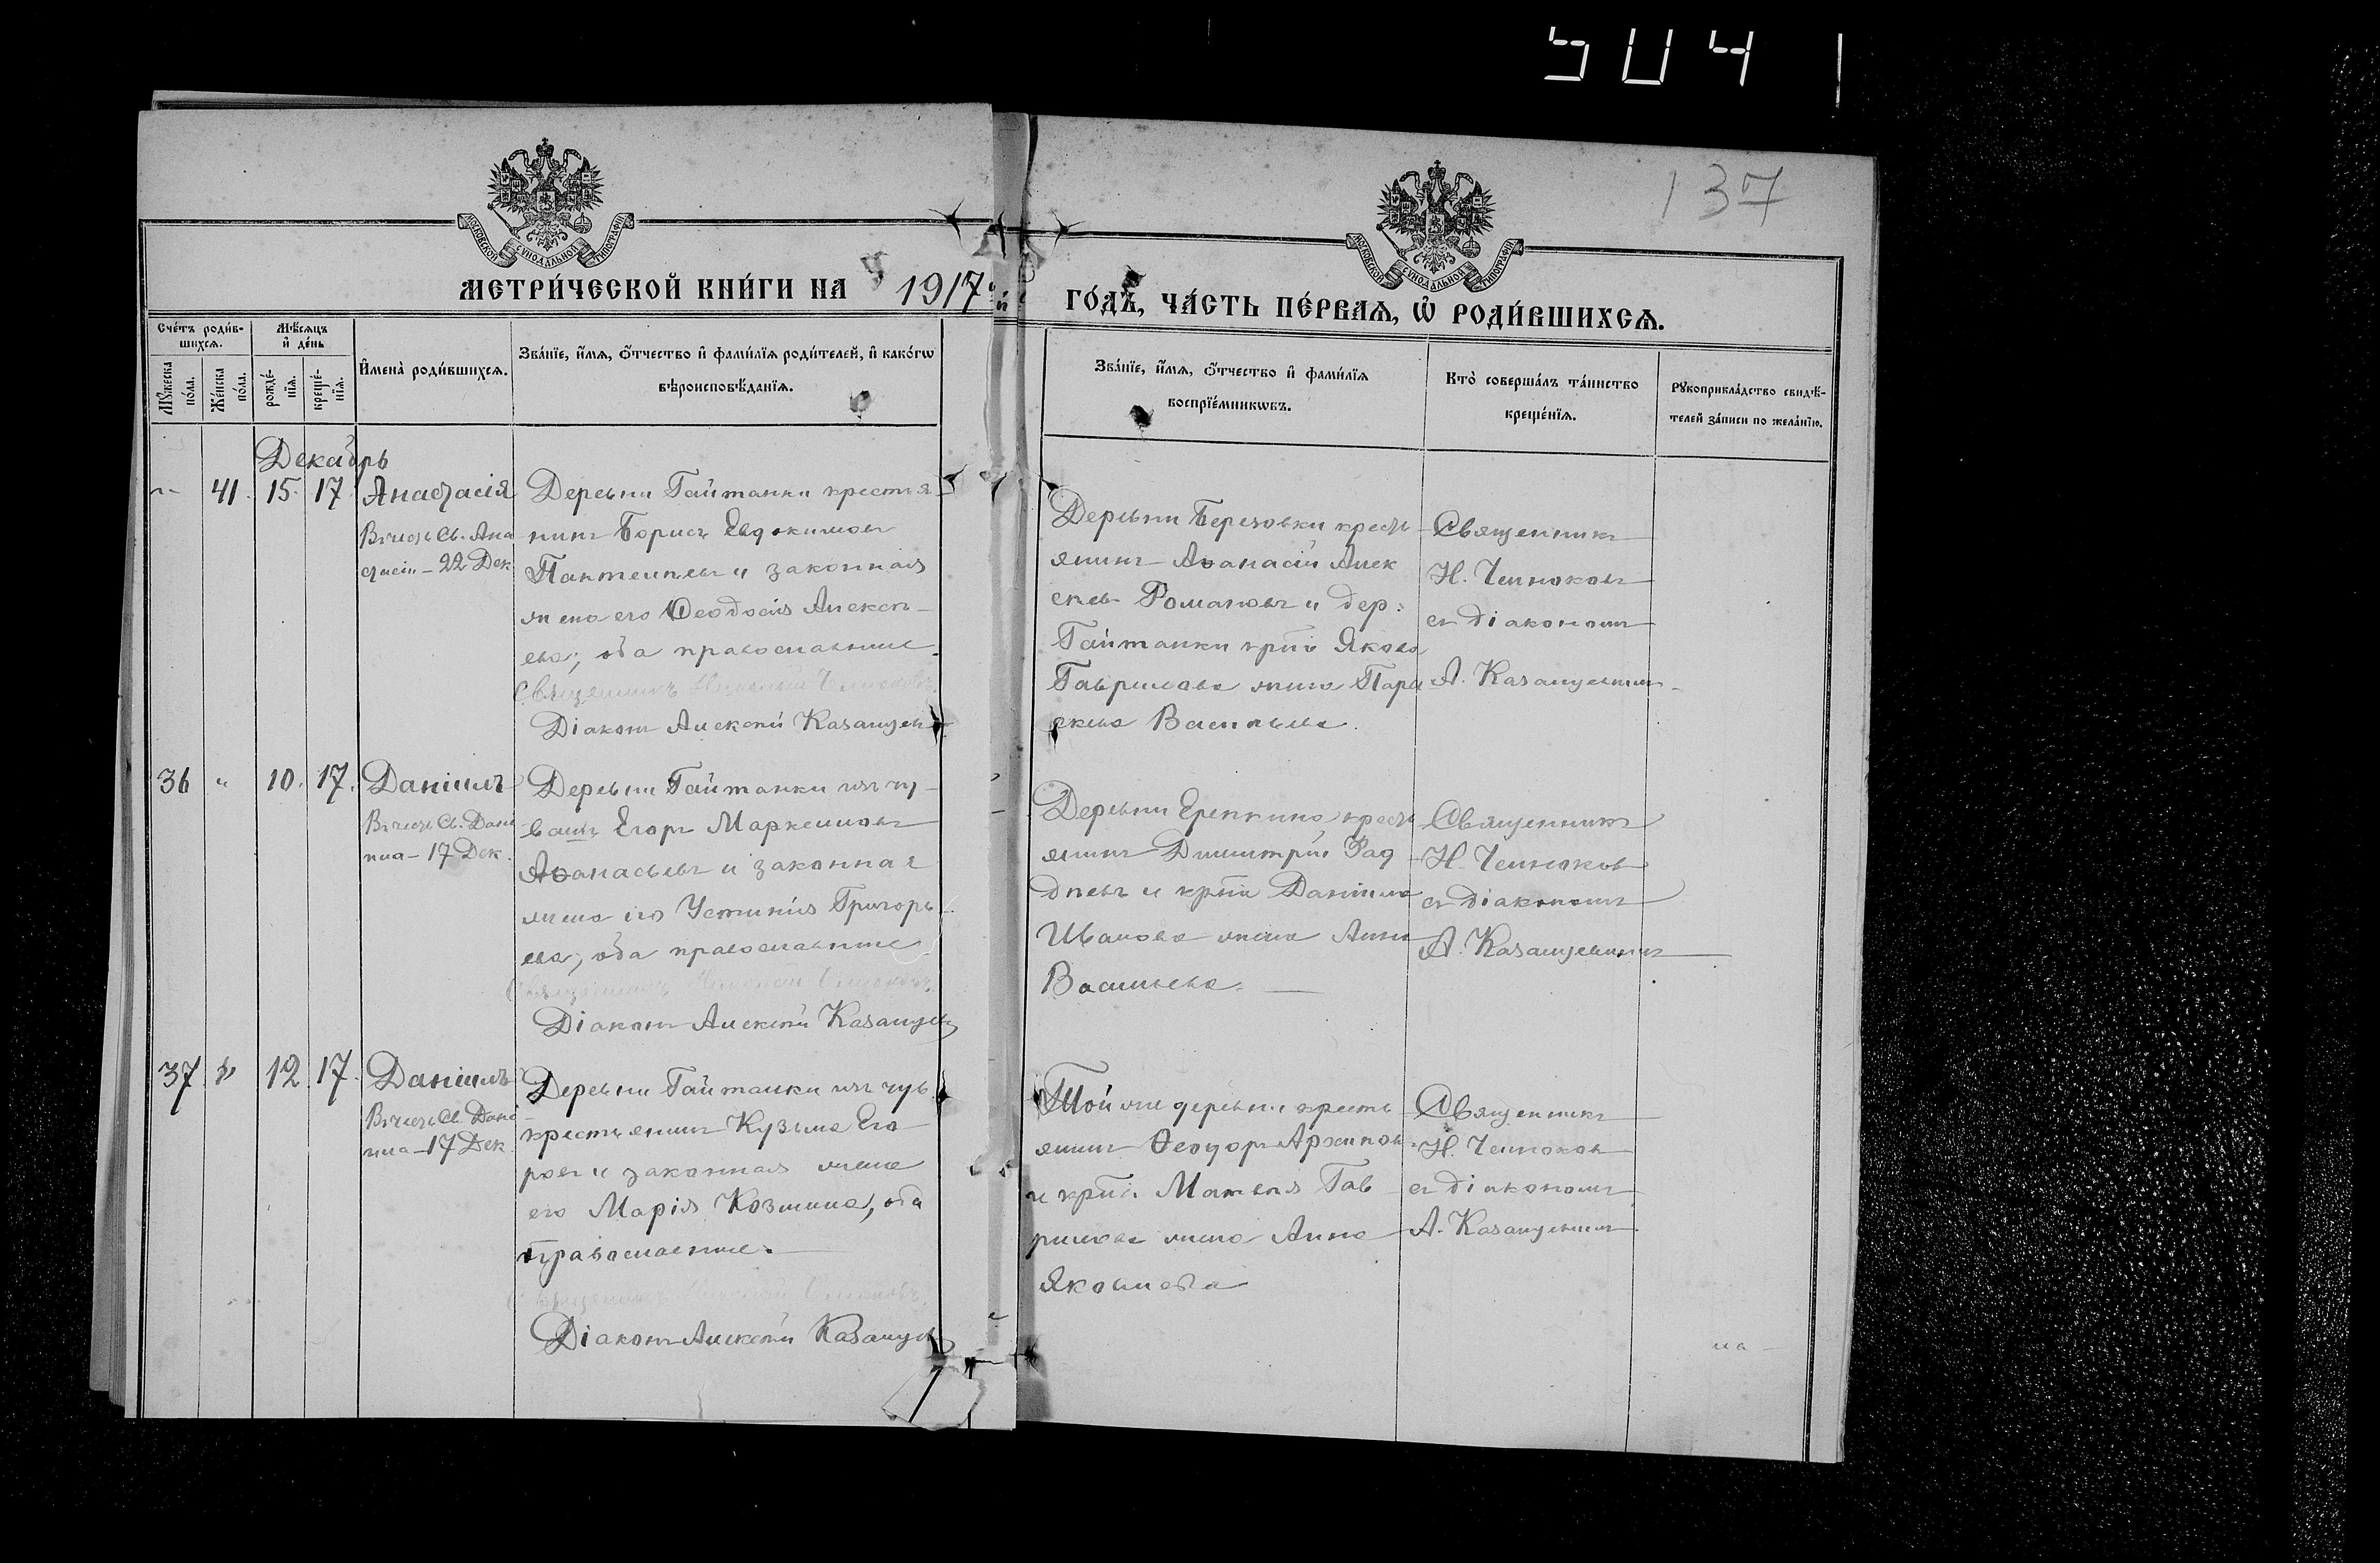 5041
137
МОСКОВСКОЙ СѴНОДАЛЬНОЙ ТИПОГРАФІИ
МЕТРИ́ЧЕСКОЙ КНИ́ГИ НА 1917й
МОСКОВСКОЙ СѴНОДАЛЬНОЙ ТИПОГРАФІИ
ГО́ДЪ, ЧА́СТЬ ПЕ́РВАѦ, Ѡ҆ РОДИ́ВШИХСѦ.
Сче́тъ роди́в-
шихсѧ.
Мꙋ́жеска по́ла.
Же́нска по́ла.
Мѣ́сѧцъ
и҆ де́нь
рожде́-нїѧ.
креще́-нїѧ.
И҆мена̀ роди́вшихсѧ.
Зва́нїе, и҆́мѧ, ѻ҆́тчество и҆ фами́лїѧ роди́телей, и҆ како́гѡ
вѣроисповѣ́данїѧ.
Зва́нїе, и҆́мѧ, ѻ҆́тчество и҆ фами́лїѧ
воспрїе́мникѡвъ.
Кто̀ соверша́лъ та́инство
креще́нїѧ.
Рꙋкоприкла́дство свидѣ́-
телей за́писи по жела́нїю.
Декабрь
41. 15. 17 Анастасія
Въ честь Св. Ана
стасіи - 22 Дек
Деревни Гайтанки крестья
нинъ Борисъ Евдокимовъ
Пантелѣевъ и законная
жена его Ѳеодосія Алексѣ-
ева; оба православные.
Священникъ Николай
Діаконъ Алексѣй Казанцевъ
Деревни Березовки кресть
янинъ Аѳанасій Алек
сѣевъ Романовъ и дер:
Гайтанки кр-на Якова
Гаврилова жена Пара
скева Васильева.
Священникъ
Н.
съ діакономъ
А. Казанцевымъ
36 " 10. 17. Даніилъ
Въ честь Св. Дані
ила - 17 Дек.
Деревни Гайтанки изъ чу-
вашъ Егоръ Маркелловъ
Аѳанасьевъ и законная
жена его Устинія Григорь
ева; оба православные
Священникъ Николай
Діаконъ Алексѣй Казанцевъ
Деревни кресть
янинъ Димитрій Фад
дѣевъ и кр-на Даніила
Иванова жена Анна
Васильева.
Священникъ
Н.
съ діакономъ
А. Казанцевымъ
37 " 12 17. Даніилъ
Въ честь Св. Дані
ила - 17 Дек.
Деревни Гайтанки изъ чув.
крестьянинъ Кузьма Его
ровъ и законная жена
его Марія Козмина, оба
православные.
Священникъ Николай
Діаконъ Алексѣй Казанцевъ
Той же деревни кресть
янинъ Ѳеодоръ Архиповъ
и кр-на Матвѣя Гав
рилова жена Анна
Яковлева
Священникъ
Н.
съ діакономъ
А. Казанцевымъ